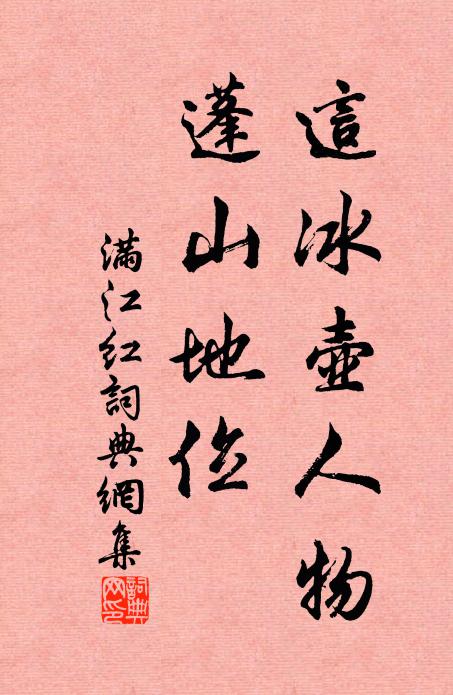 這冰壺人物
蓬山地位
滿江紅詞典網集
詞典網印